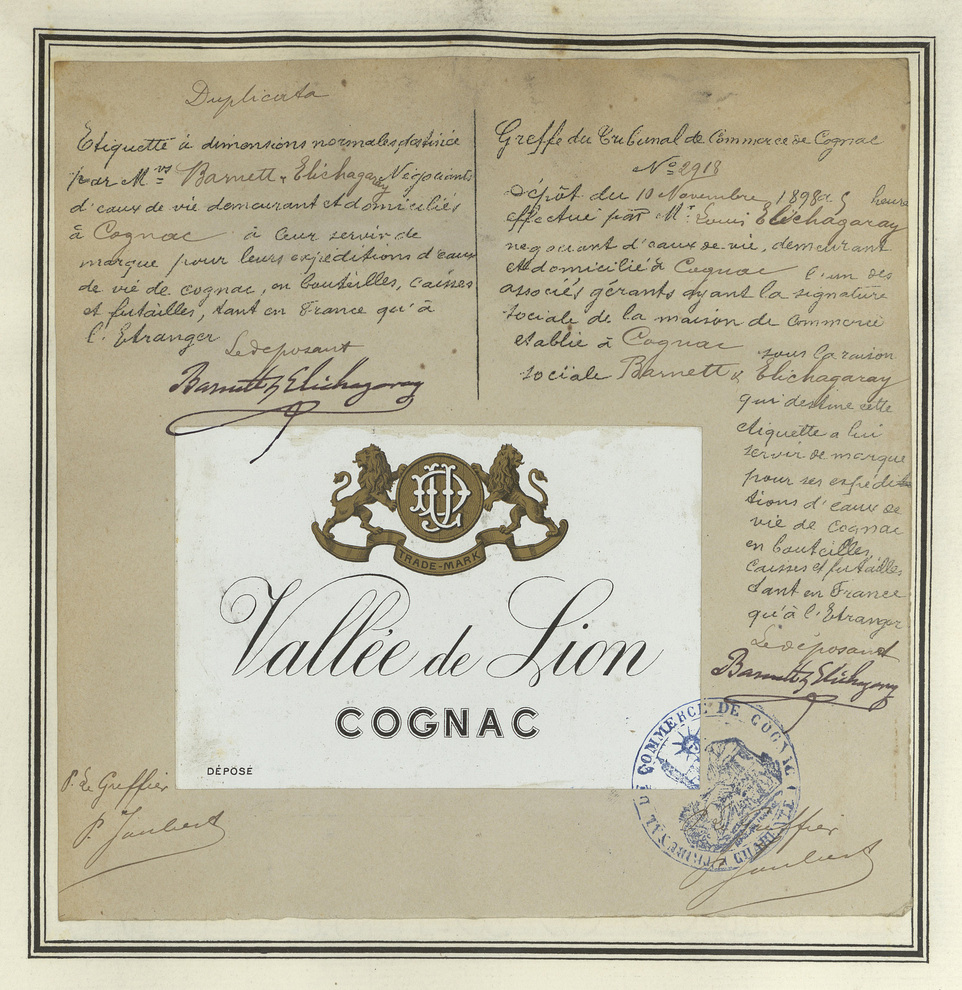 Duplicata
Etiquette à dimensions normales destinée
par Mrs Barnett & Elichagaray Négociants
d'eaux de vie demeurant et domiciliés
à Cognac à leur servir de
marque pour leurs expéditions d'eaux
de vie de cognac, en bouteilles, caisses
et futailles, tant en France qu'à
l'Etranger
Le déposant
Barnett & Elichagaray
Greffe du Tribunal de Commerce de Cognac
No 2918
Dépôt du 10 Novembre 1898 à 5 heures
effectué par Mr Louis Elichagaray
négociant d'eaux de vie, demeurant
et domicilié à Cognac l'un des
associés gérants ayant la signature
sociale de la maison de commerce
etablie à Cognac sous la raison
sociale Barnett & Elichagaray
qui destine cette
etiquette a lui
servir de marque
pour ses expédi-
tions d'eaux de
vie de Cognac
en bouteilles,
caisses et futailles
tant en France
qu'à l'Etranger
Le déposant
Barnett & Elichagaray
TRADE-MARK
Vallée de Lion
COGNAC
DÉPOSÉ
TRIBUNAL DE COMMERCE DE COGNAC
P. Le Greffier
P. Joubert
Greffier
Joubert